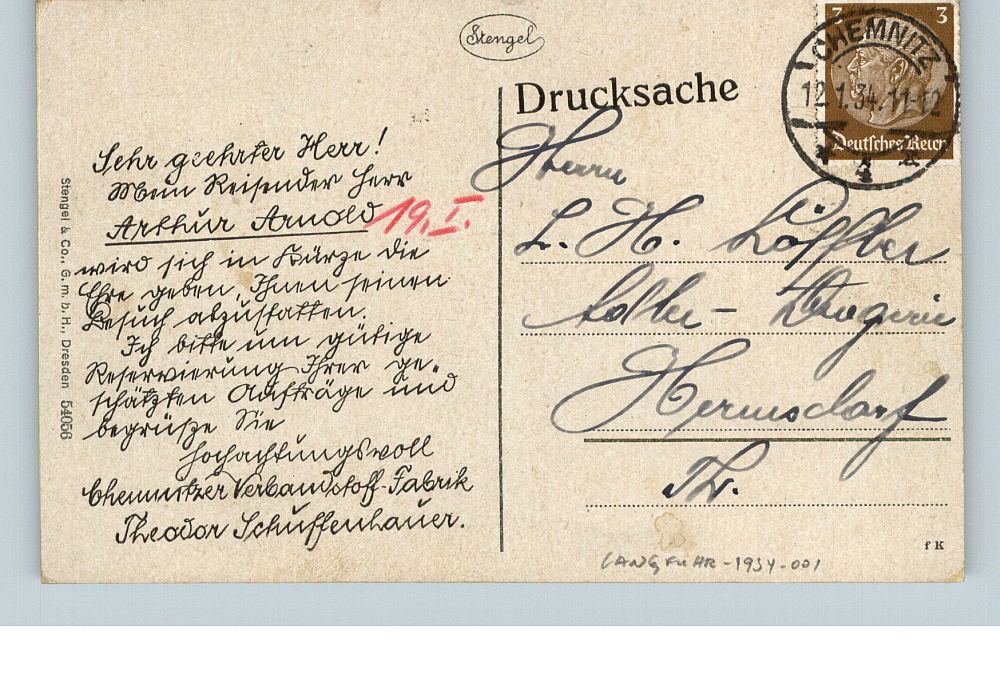 Stengel
Drucksache
3 3
CHEMNITZ
12.1.34.11-12
Deutsches Reich
4
Sehr geehrter Herr!
Mein Reisender Herr
Arthur Arnold 19.I.
wird sich in Kürze die
Ehre geben, Ihnen seinen
Besuch abzustatten.
Ich bitte um gütige
Reservierung Ihrer ge-
schätzten Aufträge und
begrüße Sie
hochachtungsvoll
Chemnitzer Verbandstoff-Fabrik
Theodor Schuffenhauer.
Stengel & Co., G. m. b. H., Dresden 54056
Herrn
L. H. Löffler
Adler-Drogerie
Hermsdorf
Th.
f K
LANGFUHR-1934-001